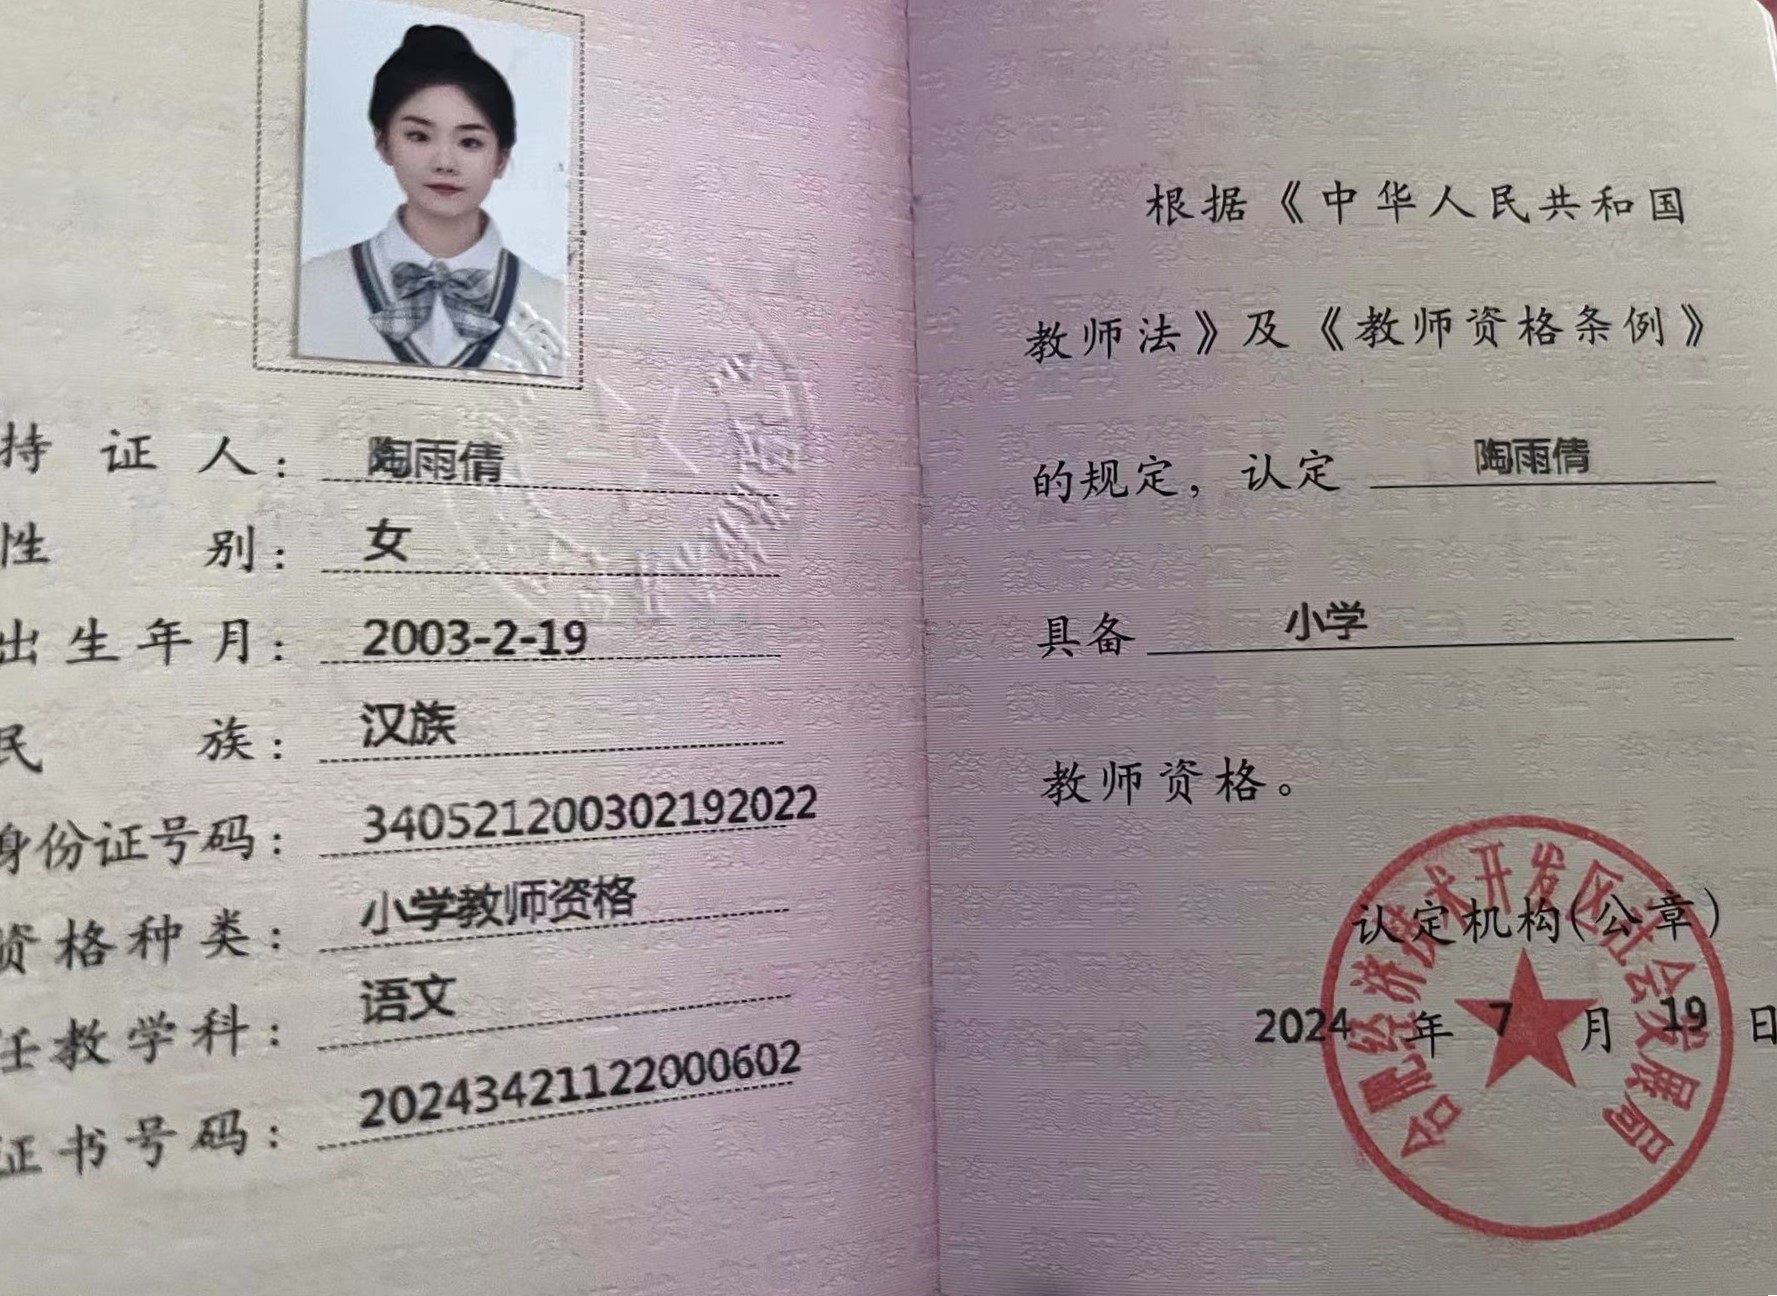 持证人：陶雨倩
性别：女
出生年月：2003-2-19
民族：汉族
身份证号码：340521200302192022
资格种类：小学教师资格
任教学科：语文
证书号码：20243421122000602
根据《中华人民共和国
教师法》及《教师资格条例》
的规定，认定 陶雨倩
具备 小学
教师资格。
认定机构(公章)
2024 年 7 月 19 日
合肥经济技术开发区社会发展局